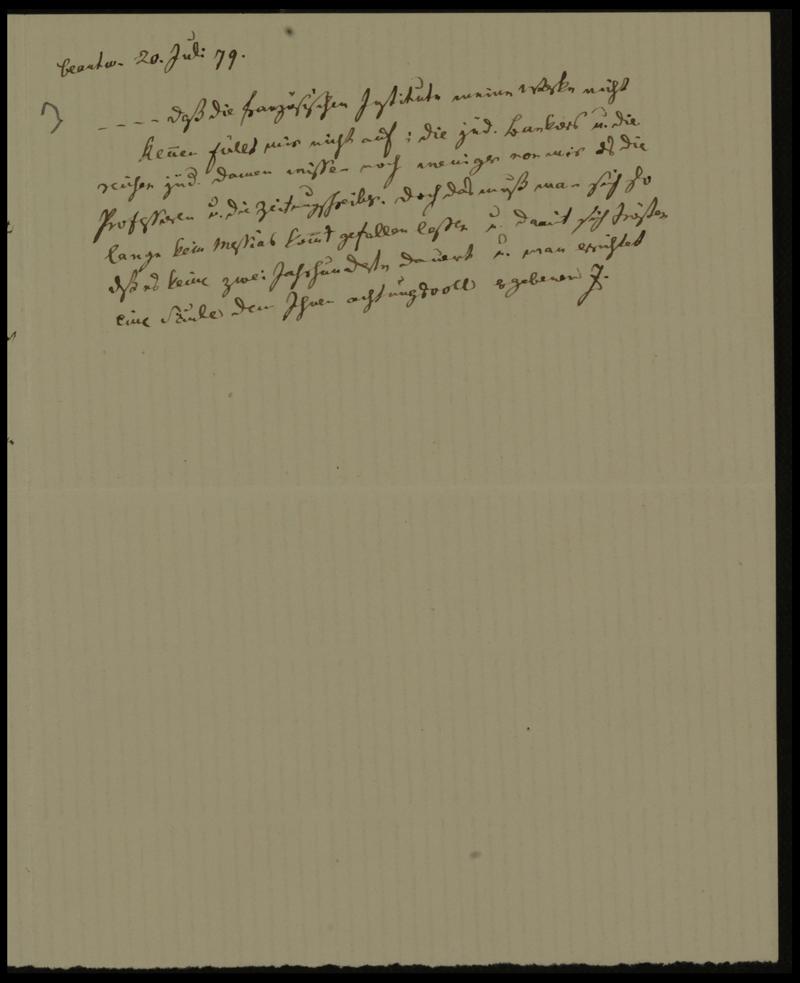 beantw. 20. Juli 79.
---- daß die französischen Institute meine Werke nicht
kennen fällt mir nicht auf; die jüd. Bankers u. die
reichen jüd. Damen wissen noch weniger von mir als die
Professoren u. die Zeitungsschreiber. Doch das muß man sich so
lange kein Messias kom̄t gefallen lassen u. damit sich trösten
daß es keine zwei Jahrhunderte dauert u. man errichtet
eine Säule dem Ihnen achtungsvoll ergebenen Z.